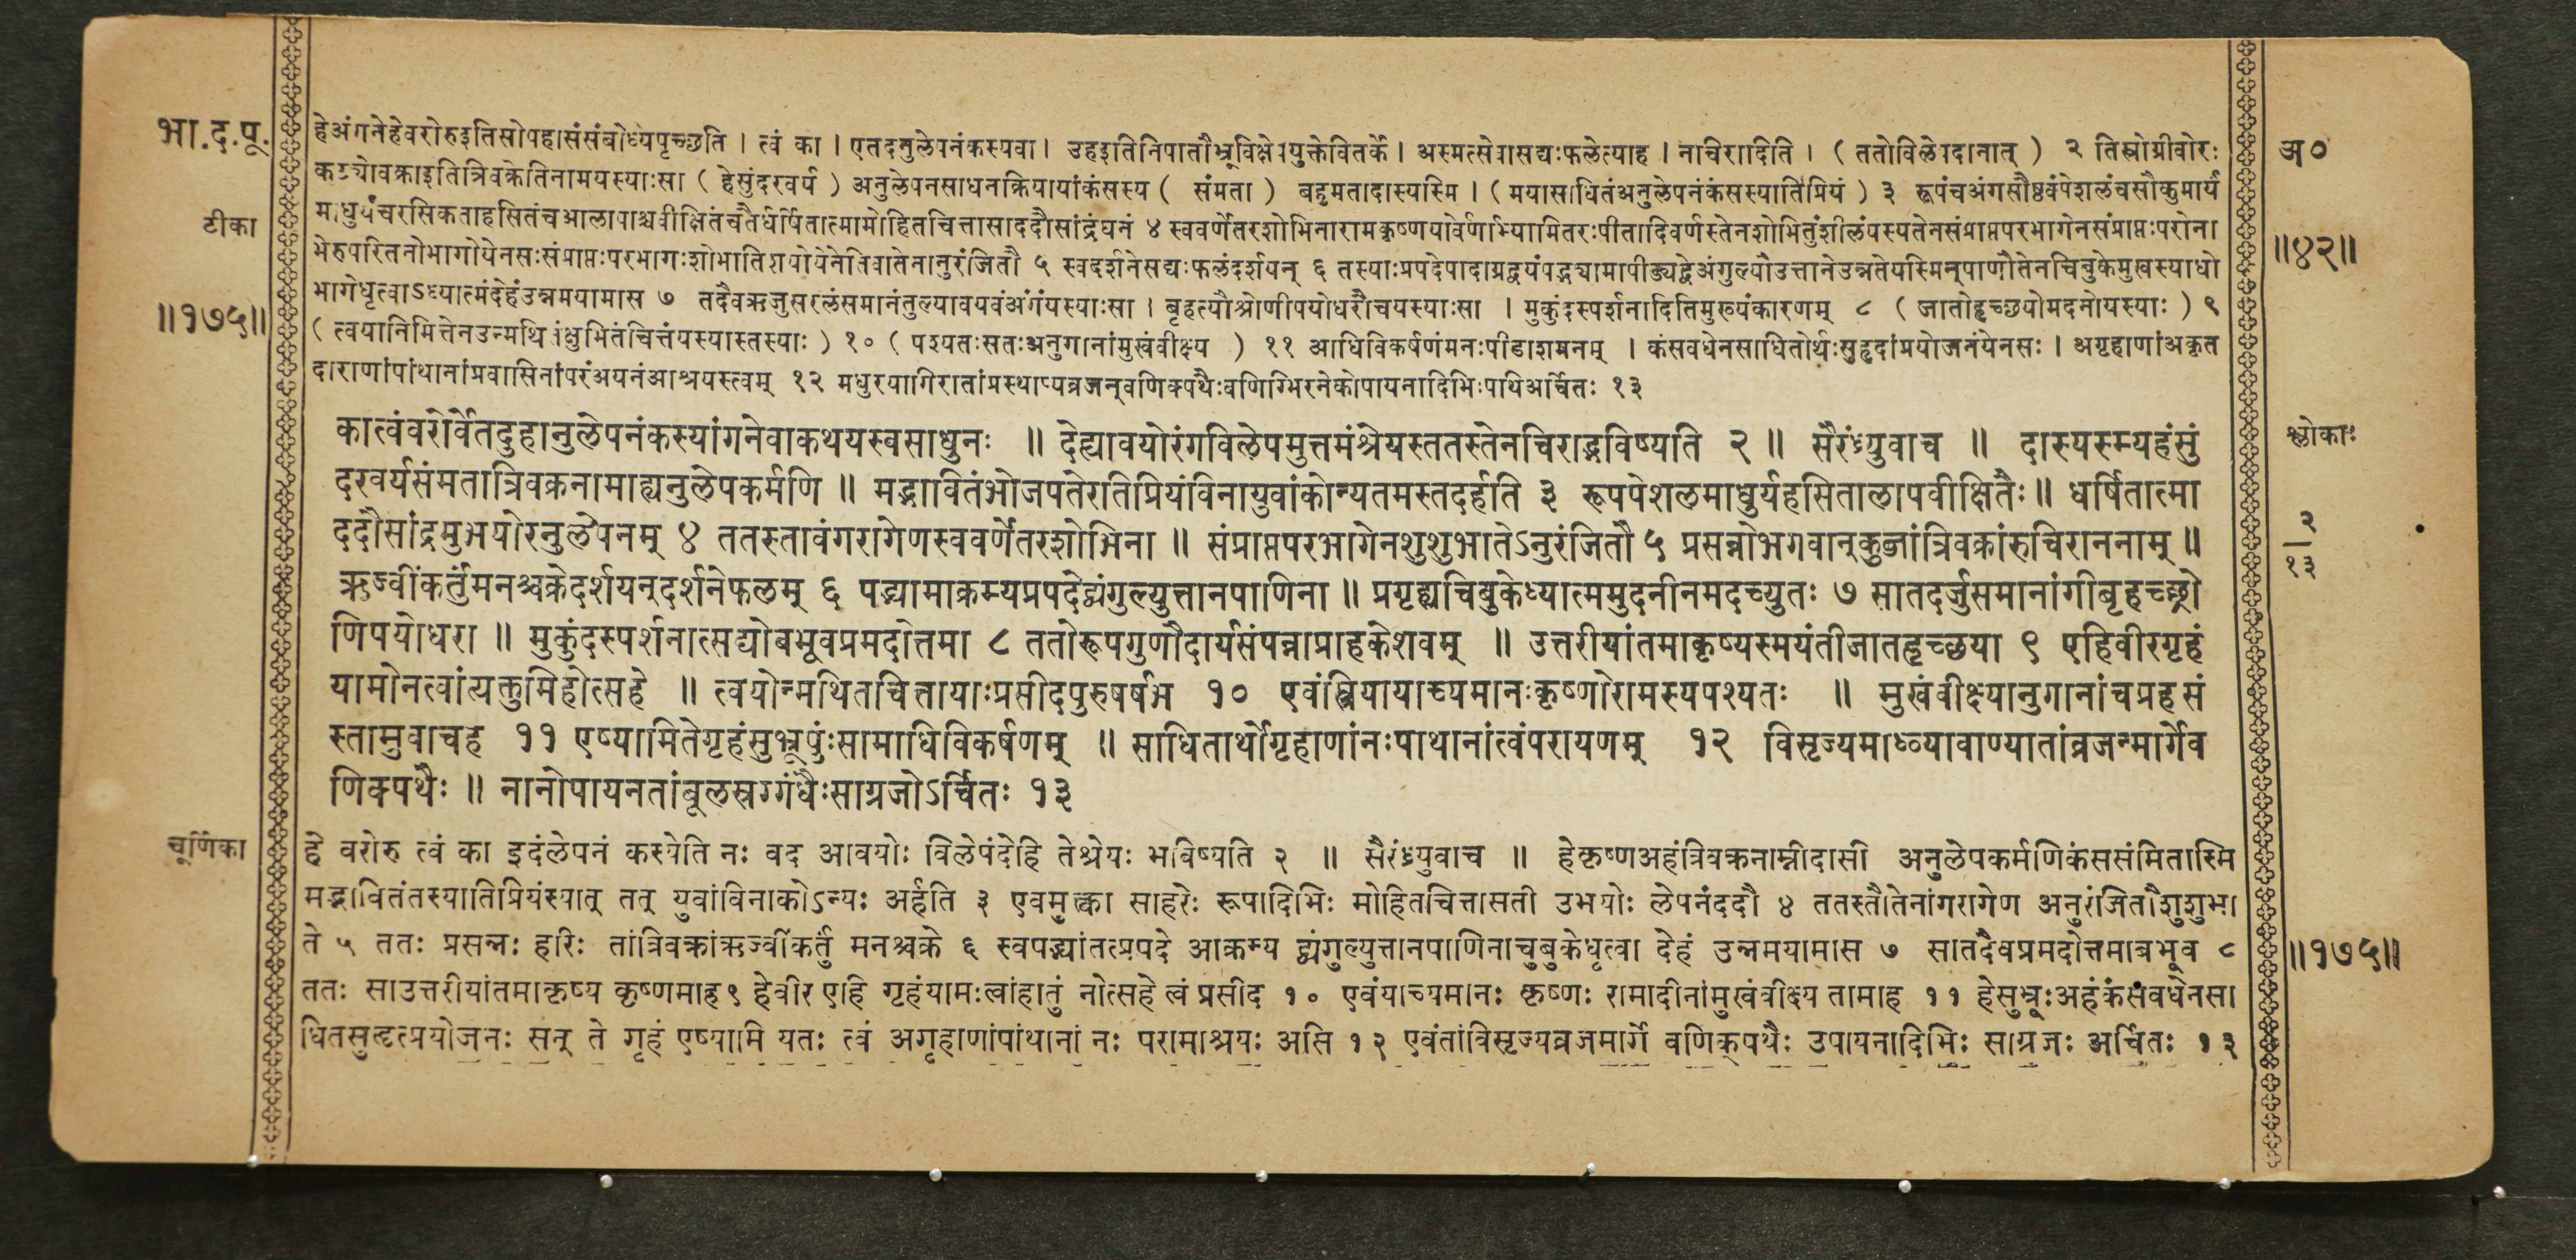 भा.द.पू.
टीका
॥१७५॥
हेअंगनेहेवरोरुइतिसोपहासंसंबोध्यपृच्छति । त्वं का । एतदनुलेपनंकस्यवा । उहइतिनिपातौभ्रूविक्षेपयुक्तेवितर्के । अस्मत्सेवासद्यःफलेत्याह । नाचिरादिति । ( ततोविलेपदानात् ) २ तिस्रोग्रीवोरः
कट्योवक्राइतित्रिवक्रेतिनामयस्याःसा ( हेसुंदरवर्य ) अनुलेपनसाधनक्रियायांकंसस्य ( संमता ) बहुमतादास्यस्मि । ( मयासाधितंअनुलेपनंकंसस्यातिप्रियं ) ३ रूपंचअंगसौष्ठवंपेशलंचसौकुमार्यं
माधुर्यंचरसिकताहसितंचआलापाश्चवीक्षितंचतैर्धर्षितात्मामोहितचित्तासाददौसांद्रंघनं ४ स्ववर्णेतरशोभिनारामकृष्णयोर्वर्णाभ्यामितरःपीतादिवर्णस्तेनशोभितुंशीलंयस्यतेनसंप्राप्तपरभागेनसंप्राप्तःपरोना
भेरुपरितनोभागोयेनसःसंप्राप्तःपरभागःशोभातिशयोयेनेतिवातेनानुरंजितौ ५ स्वदर्शनेसद्यःफलंदर्शयन् ६ तस्याःप्रपदेपादाग्रद्वयंपद्भ्यामापीड्यद्वेअंगुल्यौउत्तानेउन्नतेयस्मिनुपाणौतेनचिबुकेमुखस्याधो
भागेधृत्वाऽध्यात्मंदेहंउन्नमयामास ७ तदैवऋजुसरलंसमानंतुल्यावयवंअंगंयस्याःसा । बृहत्यौश्रोणीपयोधरौचयस्याःसा । मुकुंदस्पर्शनादितिमुख्यंकारणम् ८ ( जातोहृच्छयोमदनोयस्याः ) ९
( त्वयानिमित्तेनउन्मथितंक्षुभितंचित्तंयस्यास्तस्याः ) १० ( पश्यतःसतःअनुगानांमुखंवीक्ष्य ) ११ आधिविकर्षणंमनःपीडाशमनम् । कंसवधेनसाधितोर्थःसुहृदांप्रयोजनंयेनसः । अगृहाणांअकृत
दाराणांपांथानांप्रवासिनांपरंअयनंआश्रयस्त्वम् १२ मधुरयागिरातांप्रस्थाप्यव्रजन्वणिक्पथैःवणिग्भिरनेकोपायनादिभिःपथिअर्चितः १३
अ०
॥४२॥
कात्वंवरोर्वेतदुहानुलेपनंकस्यांगनेवाकथयस्वसाधुनः ॥ देह्यावयोरंगविलेपमुत्तमंश्रेयस्ततस्तेनचिराद्भविष्यति २ ॥ सैरंध्र्युवाच ॥ दास्यस्म्यहंसुं
दरवर्यसंमतात्रिवक्रनामाह्यनुलेपकर्मणि ॥ मद्भावितंभोजपतेरतिप्रियंविनायुवांकोन्यतमस्तदर्हति ३ रूपपेशलमाधुर्यहसितालापवीक्षितैः ॥ धर्षितात्मा
ददौसांद्रमुभयोरनुलेपनम् ४ ततस्तावंगरागेणस्ववर्णेतरशोभिना ॥ संप्राप्तपरभागेनशुशुभातेऽनुरंजितौ ५ प्रसन्नोभगवान्कुब्जांत्रिवक्रांरुचिराननाम् ॥
ऋज्वींकर्तुंमनश्चक्रेदर्शयन्दर्शनेफलम् ६ पद्भ्यामाक्रम्यप्रपदेद्व्यंगुल्युत्तानपाणिना ॥ प्रगृह्यचिबुकेध्यात्ममुदनीनमदच्युतः ७ सातदर्जुसमानांगीबृहच्छ्रो
णिपयोधरा ॥ मुकुंदस्पर्शनात्सद्योबभूवप्रमदोत्तमा ८ ततोरूपगुणौदार्यसंपन्नाप्राहकेशवम् ॥ उत्तरीयांतमाकृष्यस्मयंतीजातहृच्छया ९ एहिवीरगृहं
यामोनत्वांत्यक्तुमिहोत्सहे ॥ त्वयोन्मथितचित्तायाःप्रसीदपुरुषर्षभ १० एवंस्त्रियायाच्यमानःकृष्णोरामस्यपश्यतः ॥ मुखंवीक्ष्यानुगानांचप्रहसं
स्तामुवाचह ११ एष्यामितेगृहंसुभ्रूपुंःसामाधिविकर्षणम् ॥ साधितार्थोगृहाणांनःपाथानांत्वंपरायणम् १२ विसृज्यमाध्व्यावाण्यातांव्रजन्मार्गेव
णिक्पथैः ॥ नानोपायनतांबूलस्रग्गंधैःसाग्रजोऽर्चितः १३
श्लोकाः
२
१३
चूर्णिका
हे वरोरु त्वं का इदंलेपनं कस्येति नः वद आवयोः विलेपंदेहि तेश्रेयः भविष्यति २ ॥ सैरंध्र्युवाच ॥ हेकृष्णअहंत्रिवक्रनाम्नीदासी अनुलेपकर्मणिकंससंमितास्मि
मद्भावितंतस्यातिप्रियंस्यात् तत् युवांविनाकोऽन्यः अर्हति ३ एवमुक्त्वा साहरेः रूपादिभिः मोहितचित्तासती उभयोः लेपनंददौ ४ ततस्तौतेनांगरागेण अनुरंजितौशुशुभा
ते ५ ततः प्रसन्नः हरिः तांत्रिवक्रांऋज्वींकर्तुं मनश्चक्रे ६ स्वपद्भ्यांतत्प्रपदे आक्रम्य द्व्यंगुल्युत्तानपाणिनाचुबुकेधृत्वा देहं उन्नमयामास ७ सातदैवप्रमदोत्तमाबभूव ८
ततः साउत्तरीयांतमाकृष्य कृष्णमाह९ हेवीर एहि गृहंयामःत्वांहातुं नोत्सहे त्वं प्रसीद १० एवंयाच्यमानः कृष्णः रामादीनांमुखंवीक्ष्य तामाह ११ हेसुभ्रूःअहंकंसवधेनसा
धितसुहृत्प्रयोजनः सन् ते गृहं एष्यामि यतः त्वं अगृहाणांपांथानां नः परामाश्रयः असि १२ एवंतांविसृज्यव्रजमार्गे वणिक्पथैः उपायनादिभिः साग्रजः अर्चितः १३
॥१७५॥